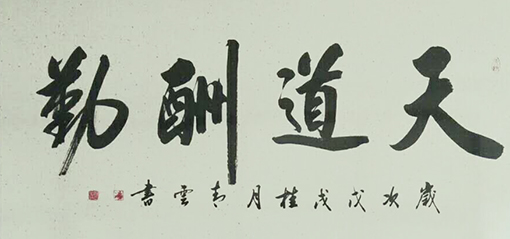 天道酬勤
歲次戊戌桂月青雲書